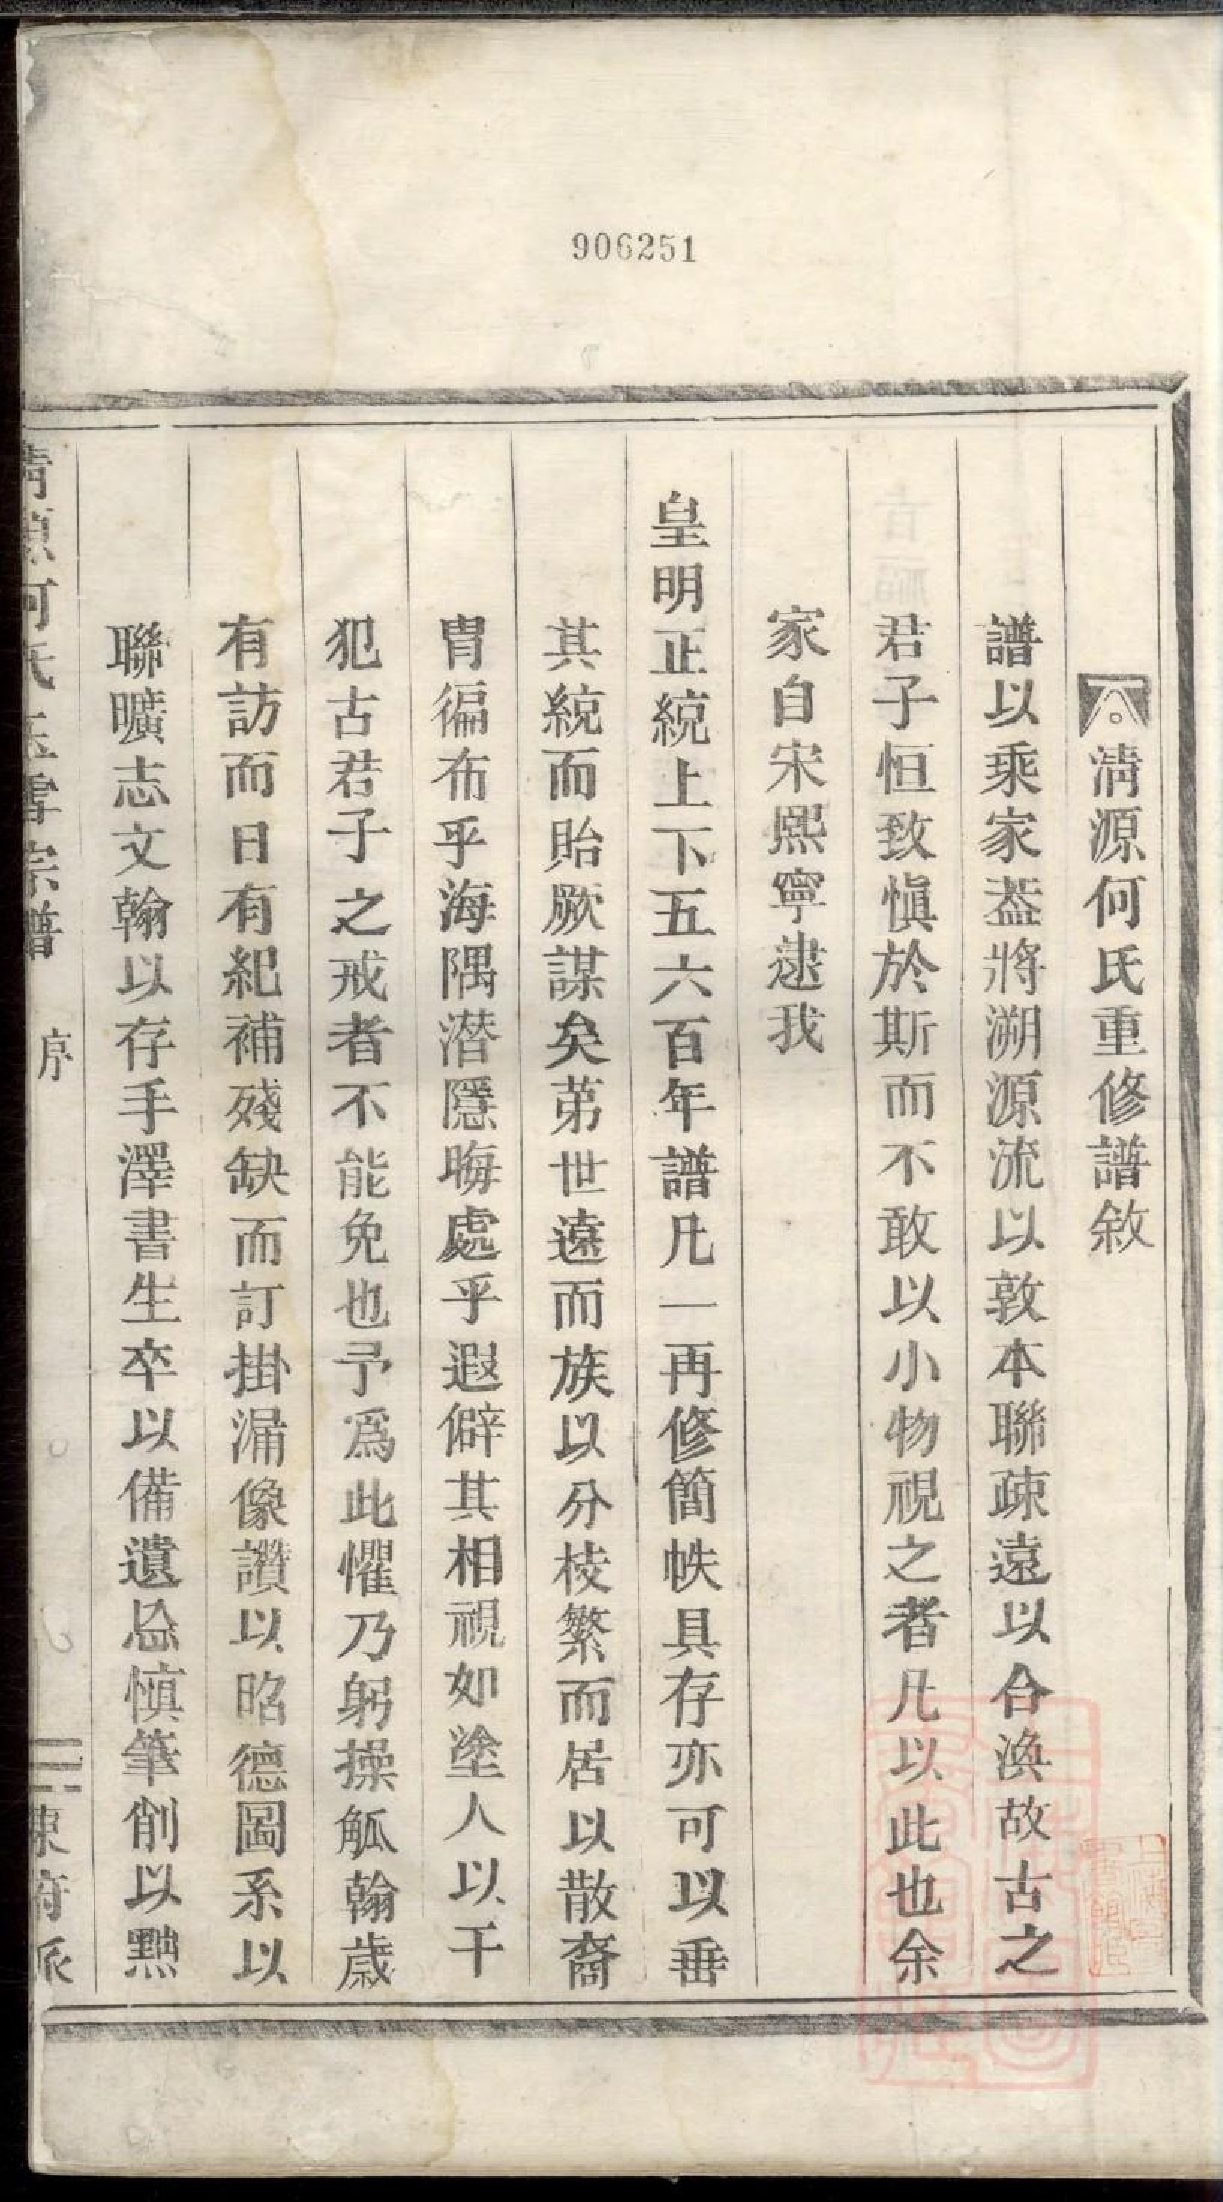 906251
清源何氏重修譜敘
譜以乘家葢將溯源流以敦本聯疎遠以合渙故古之
君子恒致愼於斯而不敢以小物視之者凡以此也余
家自宋熙寧逮我
皇明正統上下五六百年譜凡一再修簡帙具存亦可以垂
其統而貽厥謀矣苐世遠而族以分枝繁而居以散裔
胄徧布乎海隅潛隱晦處乎遐僻其相視如塗人以干
犯古君子之戒者不能免也予爲此懼乃躬操觚翰歲
有訪而日有紀補殘缺而訂掛漏像讚以昭德圖系以
聯曠志文翰以存手澤書生卒以備遺忘慎筆削以黜
清源何氏玉雪宗譜 序 二 東府派